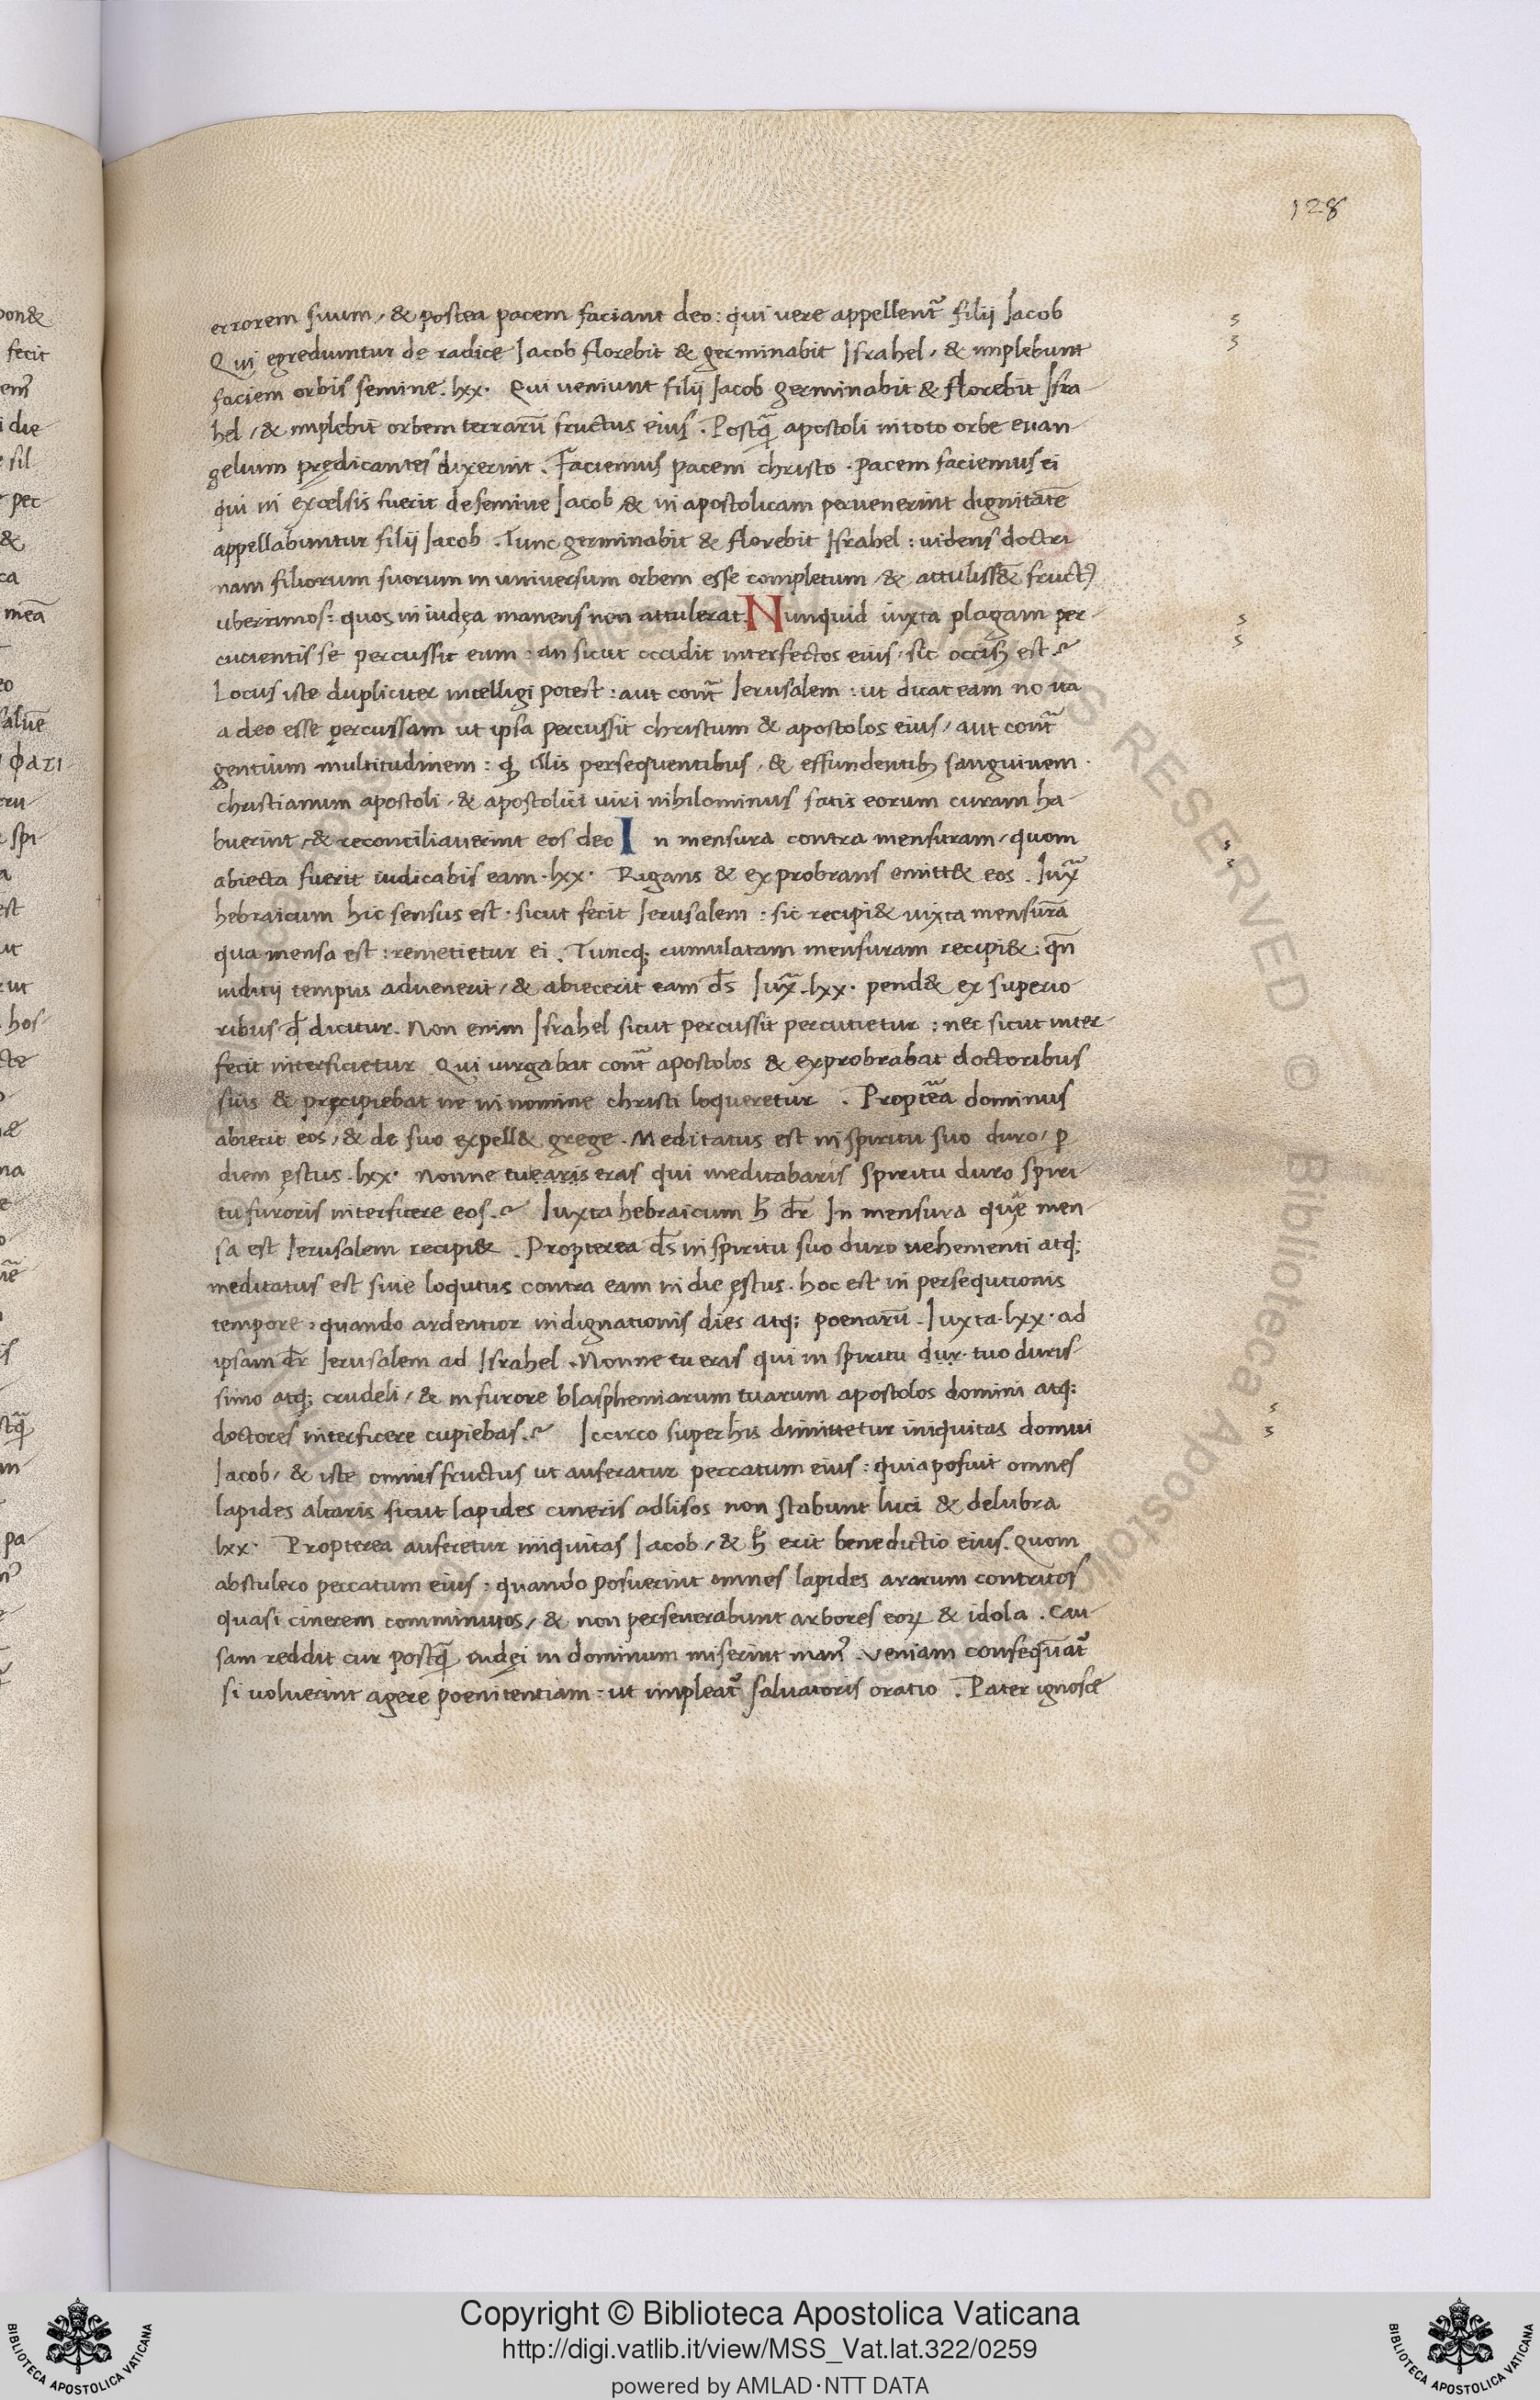 128
errorem suum, & postea pacem faciant deo: qui vere appellent᷑ filij Jacob
Qui egrediuntur de radice Jacob florebit & germinabit Israhel, & implebunt
faciem orbis semine. lxx. Qui veniunt filij Jacob germinabit & florebit Isra-
hel, & implebit̄ orbem terrarū fructus eius. Postq̄ apostoli in toto orbe evan-
gelium prędicantes dixerint. Faciemus pacem christo. pacem faciemus ei
qui in excelsis fuerit de semine Jacob, & in apostolicam pervenerint dignitatē
appellabuntur filij Jacob. Tunc germinabit & florebit Israhel: videns doctri
nam filiorum suorum in universum orbem esse completum, & attuliss& fruct⁹
uberrimos: quos in iudęa manens non attulerat. Nunquid iuxta plagam per-
cucientis se percussit eum: an sicut occidit interfectos eius, sic occisꝰ est?
Locus iste dupliciter intelligi potest: aut contᷓ Jerusalem: ut dicat eam nō ita
a deo esse percussam ut ipsa percussit christum & apostolos eius, aut contᷓ
gentium multitudinem: ꝙ illis persequentibus, & effundentibꝫ sanguinem
christianum apostoli, & apostolici viri nihilominus satis eorum curam ha-
buerint, & reconciliaverint eos deo In mensura contra mensuram, quom
abiecta fuerit iudicabis eam. lxx. Rigans & exprobrans emitt& eos. Iuxᷓ
hebraicum hic sensus est. sicut fecit Jerusalem: sic recipi& iuxta mensurā
qua mensa est: remetietur ei. Tuncq; cumulatam mensuram recipi&: qn̄
iuditij tempus advenerit, & abiecerit eam ds̄ Iuxᷓ. lxx. pend& ex superio
ribus qd̄ dicitur. Non enim Israhel sicut percussit percutietur: nec sicut inter-
fecit interficietur Qui iurgabat contᷓ apostolos & exprobrabat doctoribus
suis & pręcipiebat ne in nomine christi loqueretur. Proptᷓea dominus
abiecit eos, & de suo expell& grege. Meditatus est in spiritu suo duro, ꝑ
diem ęstus. lxx. Nonne tu earis eras qui meditabaris spiritu duro spiri-
tu furoris interficere eos? Iuxta hebraicum h̄ dr̄ In mensura quę men-
sa est Jerusalem recipi&. Propterea ds̄ in spiritu suo duro vehementi atq;
meditatus est sive loqutus contra eam in die ęstus. hoc est in persequtionis
tempore, quando ardentior indignationis dies atq; poenarū. Iuxta. lxx. ad
ipsam dr̄ Jerusalem ad Israhel. Nonne tu eras qui in spiritu dur. tuo duris-
simo atq; crudeli, & in furore blasphemiarum tuarum apostolos domini atq;
doctores interficere cupiebas? Iccirco super his dimittetur iniquitas domui
Jacob, & iste omnis fructus ut auferatur peccatum eius: quia posuit omnes
lapides altaris sicut lapides cineris adlisos non stabunt luci & delubra
lxx. Propterea auferetur iniquitas Jacob, & h̄ erit benedictio eius. Quom
abstulero peccatum eius: quando posuerint omnes lapides ararum contritos
quasi cinerem comminutos, & non perseverabunt arbores eoꝝ & idola. Cau-
sam reddit cur postq̄ iudęi in dominum miserint man⁹ veniam conseq̄uat᷑
si voluerint agere poenitentiam: ut impleat᷑ salvatoris oratio. Pater ignosce
Copyright © Biblioteca Apostolica Vaticana
http://digi.vatlib.it/view/MSS_Vat.lat.322/0259
powered by AMLAD·NTT DATA
BIBLIOTECA APOSTOLICA VATICANA
BIBLIOTECA APOSTOLICA VATICANA